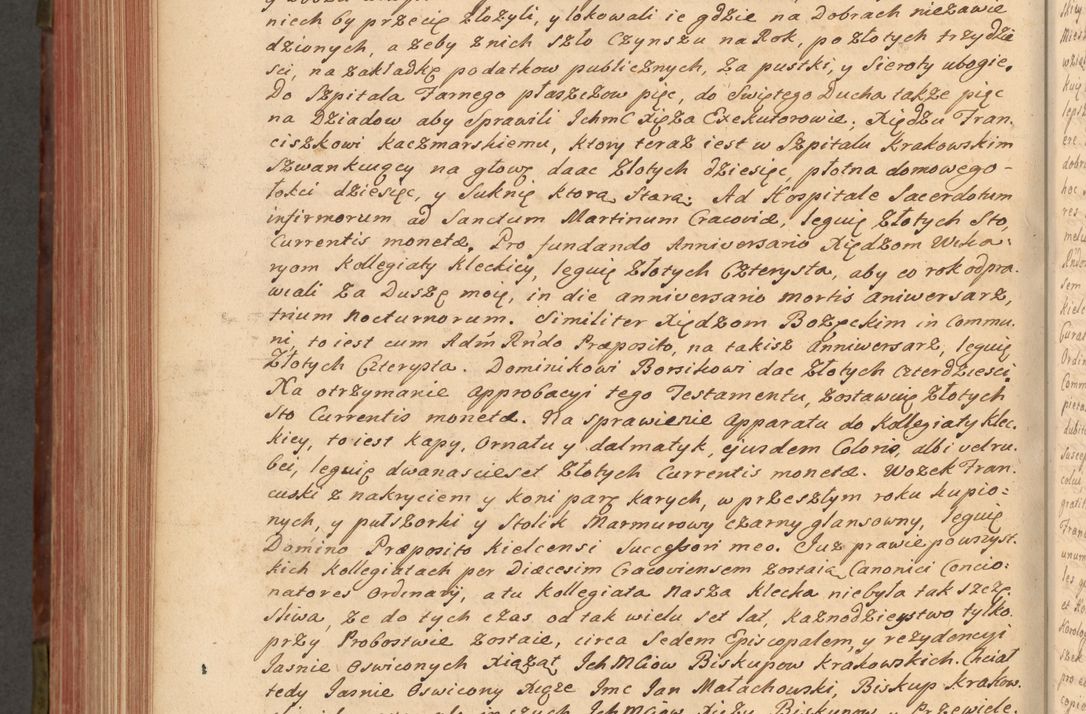 niech by przecię złożyli, y lokowali ie gdzie na Dobrach niezawie
dzionych, a żeby z nich szło Czynszu na Rok, po złotych trzydzie
ści, na zakładkę podatkow publicznych, za pustki, y Sieroty ubogie.
Do Szpitala Farnego płaszczow pięc, do Swiętego Ducha także pięc
na Dziadow aby sprawili Ichmc Xięża Exekutorowie; Xiędzu Fran,
ciszkowi kaczmarskiemu, ktory teraz iest w Szpitalu Krakowskim
szwankuiący na głowę daac Złotych dziesięc, płotna domowego-
łokci dziesięc, y suknię ktorą Starą; Ad Hospitale Sacerdotum
infirmorum ad Sanctum Martinum Cracoviæ, leguię Złotych Sto,
Currentis monetæ. Pro fundando Anniversario Xiędzom Wika:
ryom kollegiaty kleckicy, leguię Złotych Czterysta, aby co rok odpra.
wiali za Duszę moię, in die anniversario mortis aniwersarz,
trium Nocturnorum. Similiter Xiędzom Bożęckim in Commu.
ni, to iest cum Adm Rndo Præposito, na takisz anniwersarz, leguię
Złotych Czterysta. Dominikowi Borsikowi dac złotych czterdziesci.
Na otrzymanie approbacyi tego Testamentu, zostawuię Złotych
sto Currentis monetæ. Na sprawienie apparatu do kollegiaty klec.
kiey, to iest kapy, ornatu y dalmatyk, ejusdem Coloris, albi vel ru.
bei, leguię dwanascieset Złotych Currentis monetæ. Wozek Fran.
cuski z nakryciem y koni parę karych, w przeszłym roku kupio:
nych, y pułszorki y Stolik Marmurowy czarny glansowny, leguię
Domino Præposito kielcensi successori meo. Już prawie powszyst.
kich kollegiatach per Diæcesim Cracoviensem zostaią Canonici Concio:
natores Ordinarÿ, a tu kollegiata nasza klecka niebyła tak szczę
śliwa, że do tych czas od tak wielu set lat, kaznodzieystwo tylko
przy Probostwie zostaie, circa Sedem Episcopalem, y rezydencyi
Jasnie Oswiconych Xiążąt Ich MCiow Biskupow krakowskich. Chciał
tedy Jasnie Oswicony Xiąże Imc Jan Małachowski, Biskup krakow.